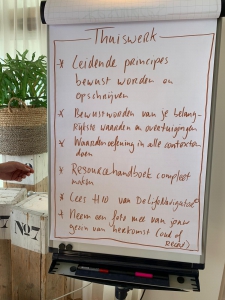 Thuiswerk
* Leidende principes
bewust worden en
opschrijven
* Bewustworden van je belang-
rijkste waarden en overtuigingen
* Waardenoefening in alle contexten
doen
* Resourcehandboek compleet
maken
* Lees H10 van De Lifenavigator
* Neem een foto mee van jouw
gezin van herkomst (oud of
recent)
No7